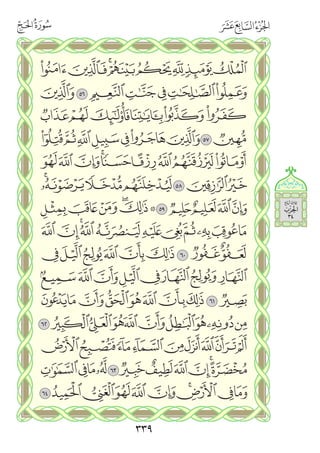 الجزء السابع عشر
سورة الحج
ٱلۡمُلۡكُ يَوۡمَئِذٖ لِّلَّهِ يَحۡكُمُ بَيۡنَهُمۡۚ فَٱلَّذِينَ ءَامَنُواْ
وَعَمِلُواْ ٱلصَّٰلِحَٰتِ فِي جَنَّٰتِ ٱلنَّعِيمِ ٥٦ وَٱلَّذِينَ
كَفَرُواْ وَكَذَّبُواْ بِـَٔايَٰتِنَا فَأُوْلَٰٓئِكَ لَهُمۡ عَذَابٞ
مُّهِينٞ ٥٧ وَٱلَّذِينَ هَاجَرُواْ فِي سَبِيلِ ٱللَّهِ ثُمَّ قُتِلُوٓاْ
أَوۡ مَاتُواْ لَيَرۡزُقَنَّهُمُ ٱللَّهُ رِزۡقًا حَسَنٗاۚ وَإِنَّ ٱللَّهَ لَهُوَ
خَيۡرُ ٱلرَّٰزِقِينَ ٥٨ لَيُدۡخِلَنَّهُم مُّدۡخَلٗا يَرۡضَوۡنَهُۥۚ
وَإِنَّ ٱللَّهَ لَعَلِيمٌ حَلِيمٞ ٥٩ ۞ ذَٰلِكَۖ وَمَنۡ عَاقَبَ بِمِثۡلِ
مَا عُوقِبَ بِهِۦ ثُمَّ بُغِيَ عَلَيۡهِ لَيَنصُرَنَّهُ ٱللَّهُۚ إِنَّ ٱللَّهَ
لَعَفُوٌّ غَفُورٞ ٦٠ ذَٰلِكَ بِأَنَّ ٱللَّهَ يُولِجُ ٱلَّيۡلَ فِي
ٱلنَّهَارِ وَيُولِجُ ٱلنَّهَارَ فِي ٱلَّيۡلِ وَأَنَّ ٱللَّهَ سَمِيعُۢ
بَصِيرٞ ٦١ ذَٰلِكَ بِأَنَّ ٱللَّهَ هُوَ ٱلۡحَقُّ وَأَنَّ مَا يَدۡعُونَ
مِن دُونِهِۦ هُوَ ٱلۡبَٰطِلُ وَأَنَّ ٱللَّهَ هُوَ ٱلۡعَلِيُّ ٱلۡكَبِيرُ ٦٢
أَلَمۡ تَرَ أَنَّ ٱللَّهَ أَنزَلَ مِنَ ٱلسَّمَآءِ مَآءٗ فَتُصۡبِحُ ٱلۡأَرۡضُ
مُخۡضَرَّةًۚ إِنَّ ٱللَّهَ لَطِيفٌ خَبِيرٞ ٦٣ لَّهُۥ مَا فِي ٱلسَّمَٰوَٰتِ
وَمَا فِي ٱلۡأَرۡضِۚ وَإِنَّ ٱللَّهَ لَهُوَ ٱلۡغَنِيُّ ٱلۡحَمِيدُ ٦٤
٣٣٩